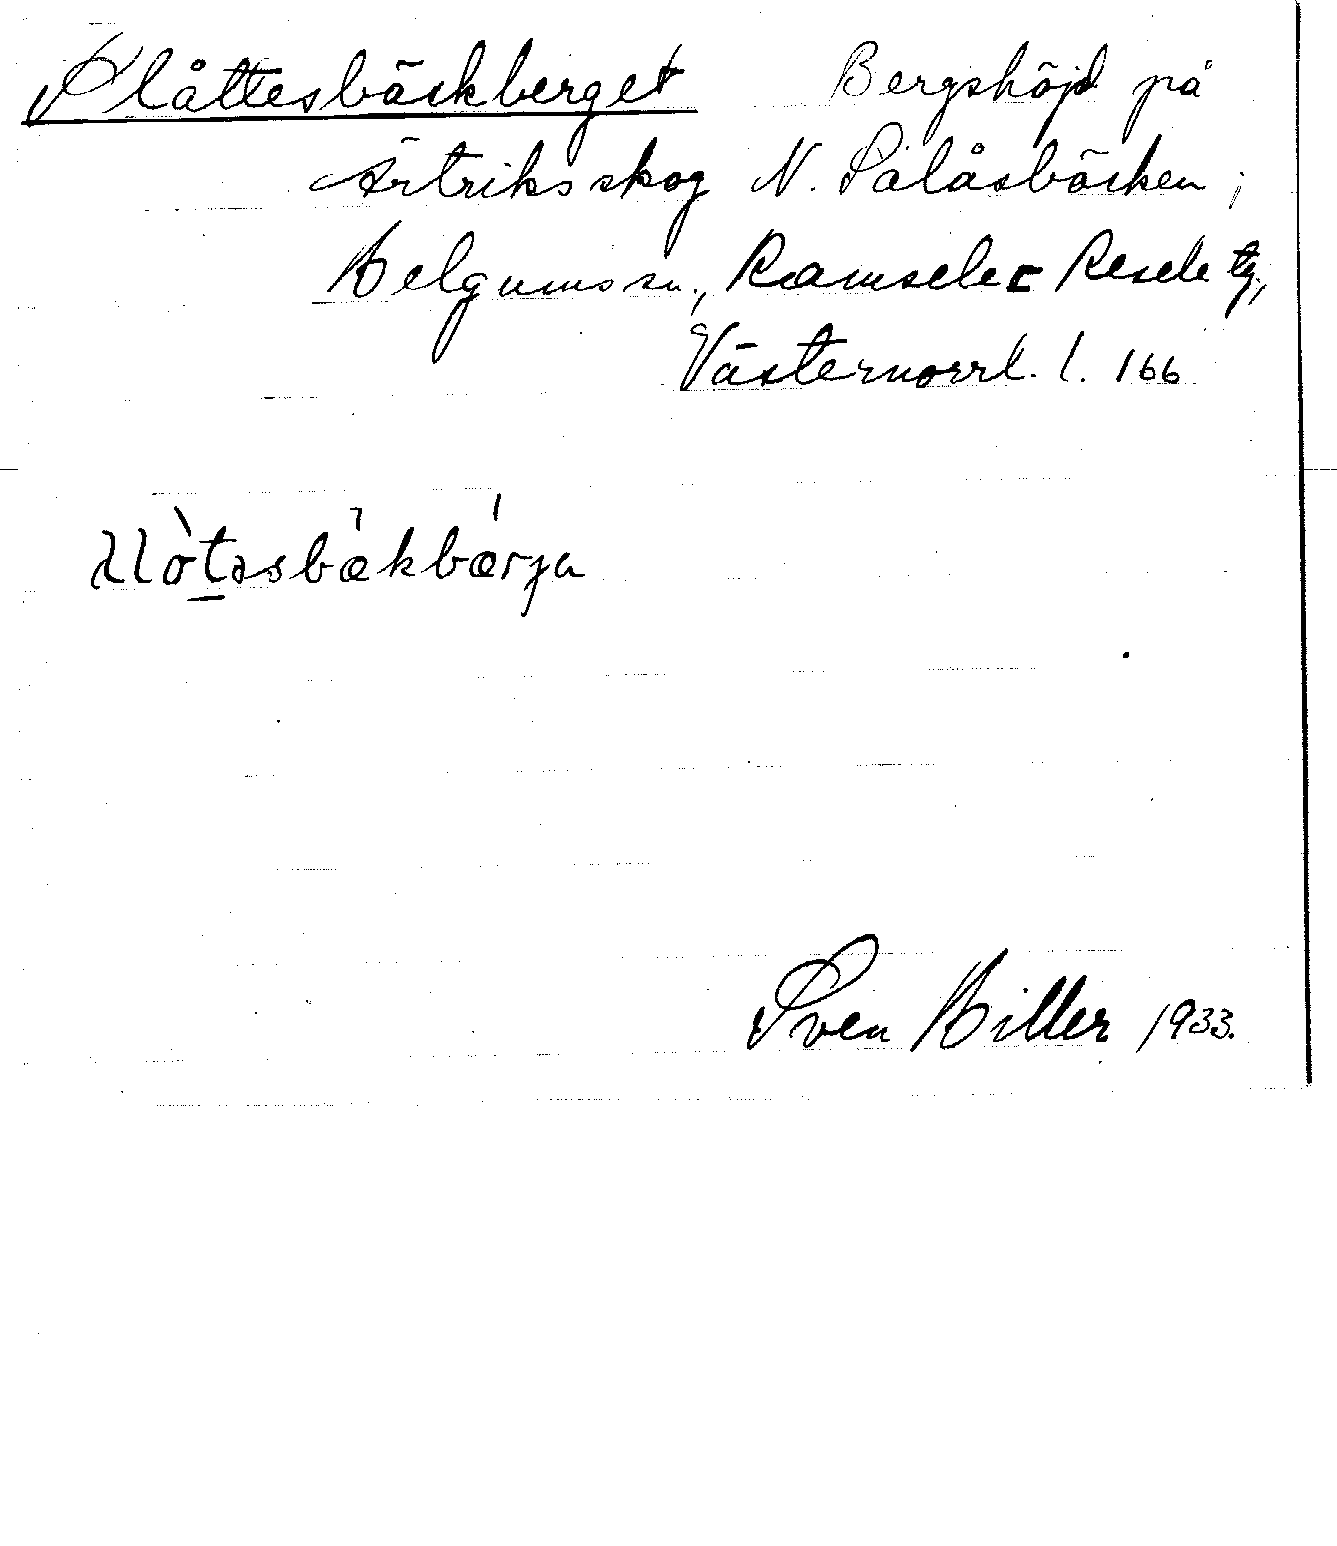 Slåttesbäckberget Bergshöjd på
Ärtriks skog N. Sålåsbäcken;
Helgums sn., Ramsele o Resele tg,
Västernorrl. l. 166
Sven Hiller 1933.